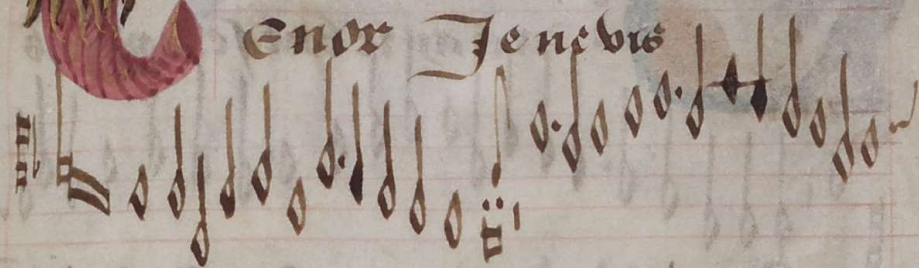 Enor Je nevis